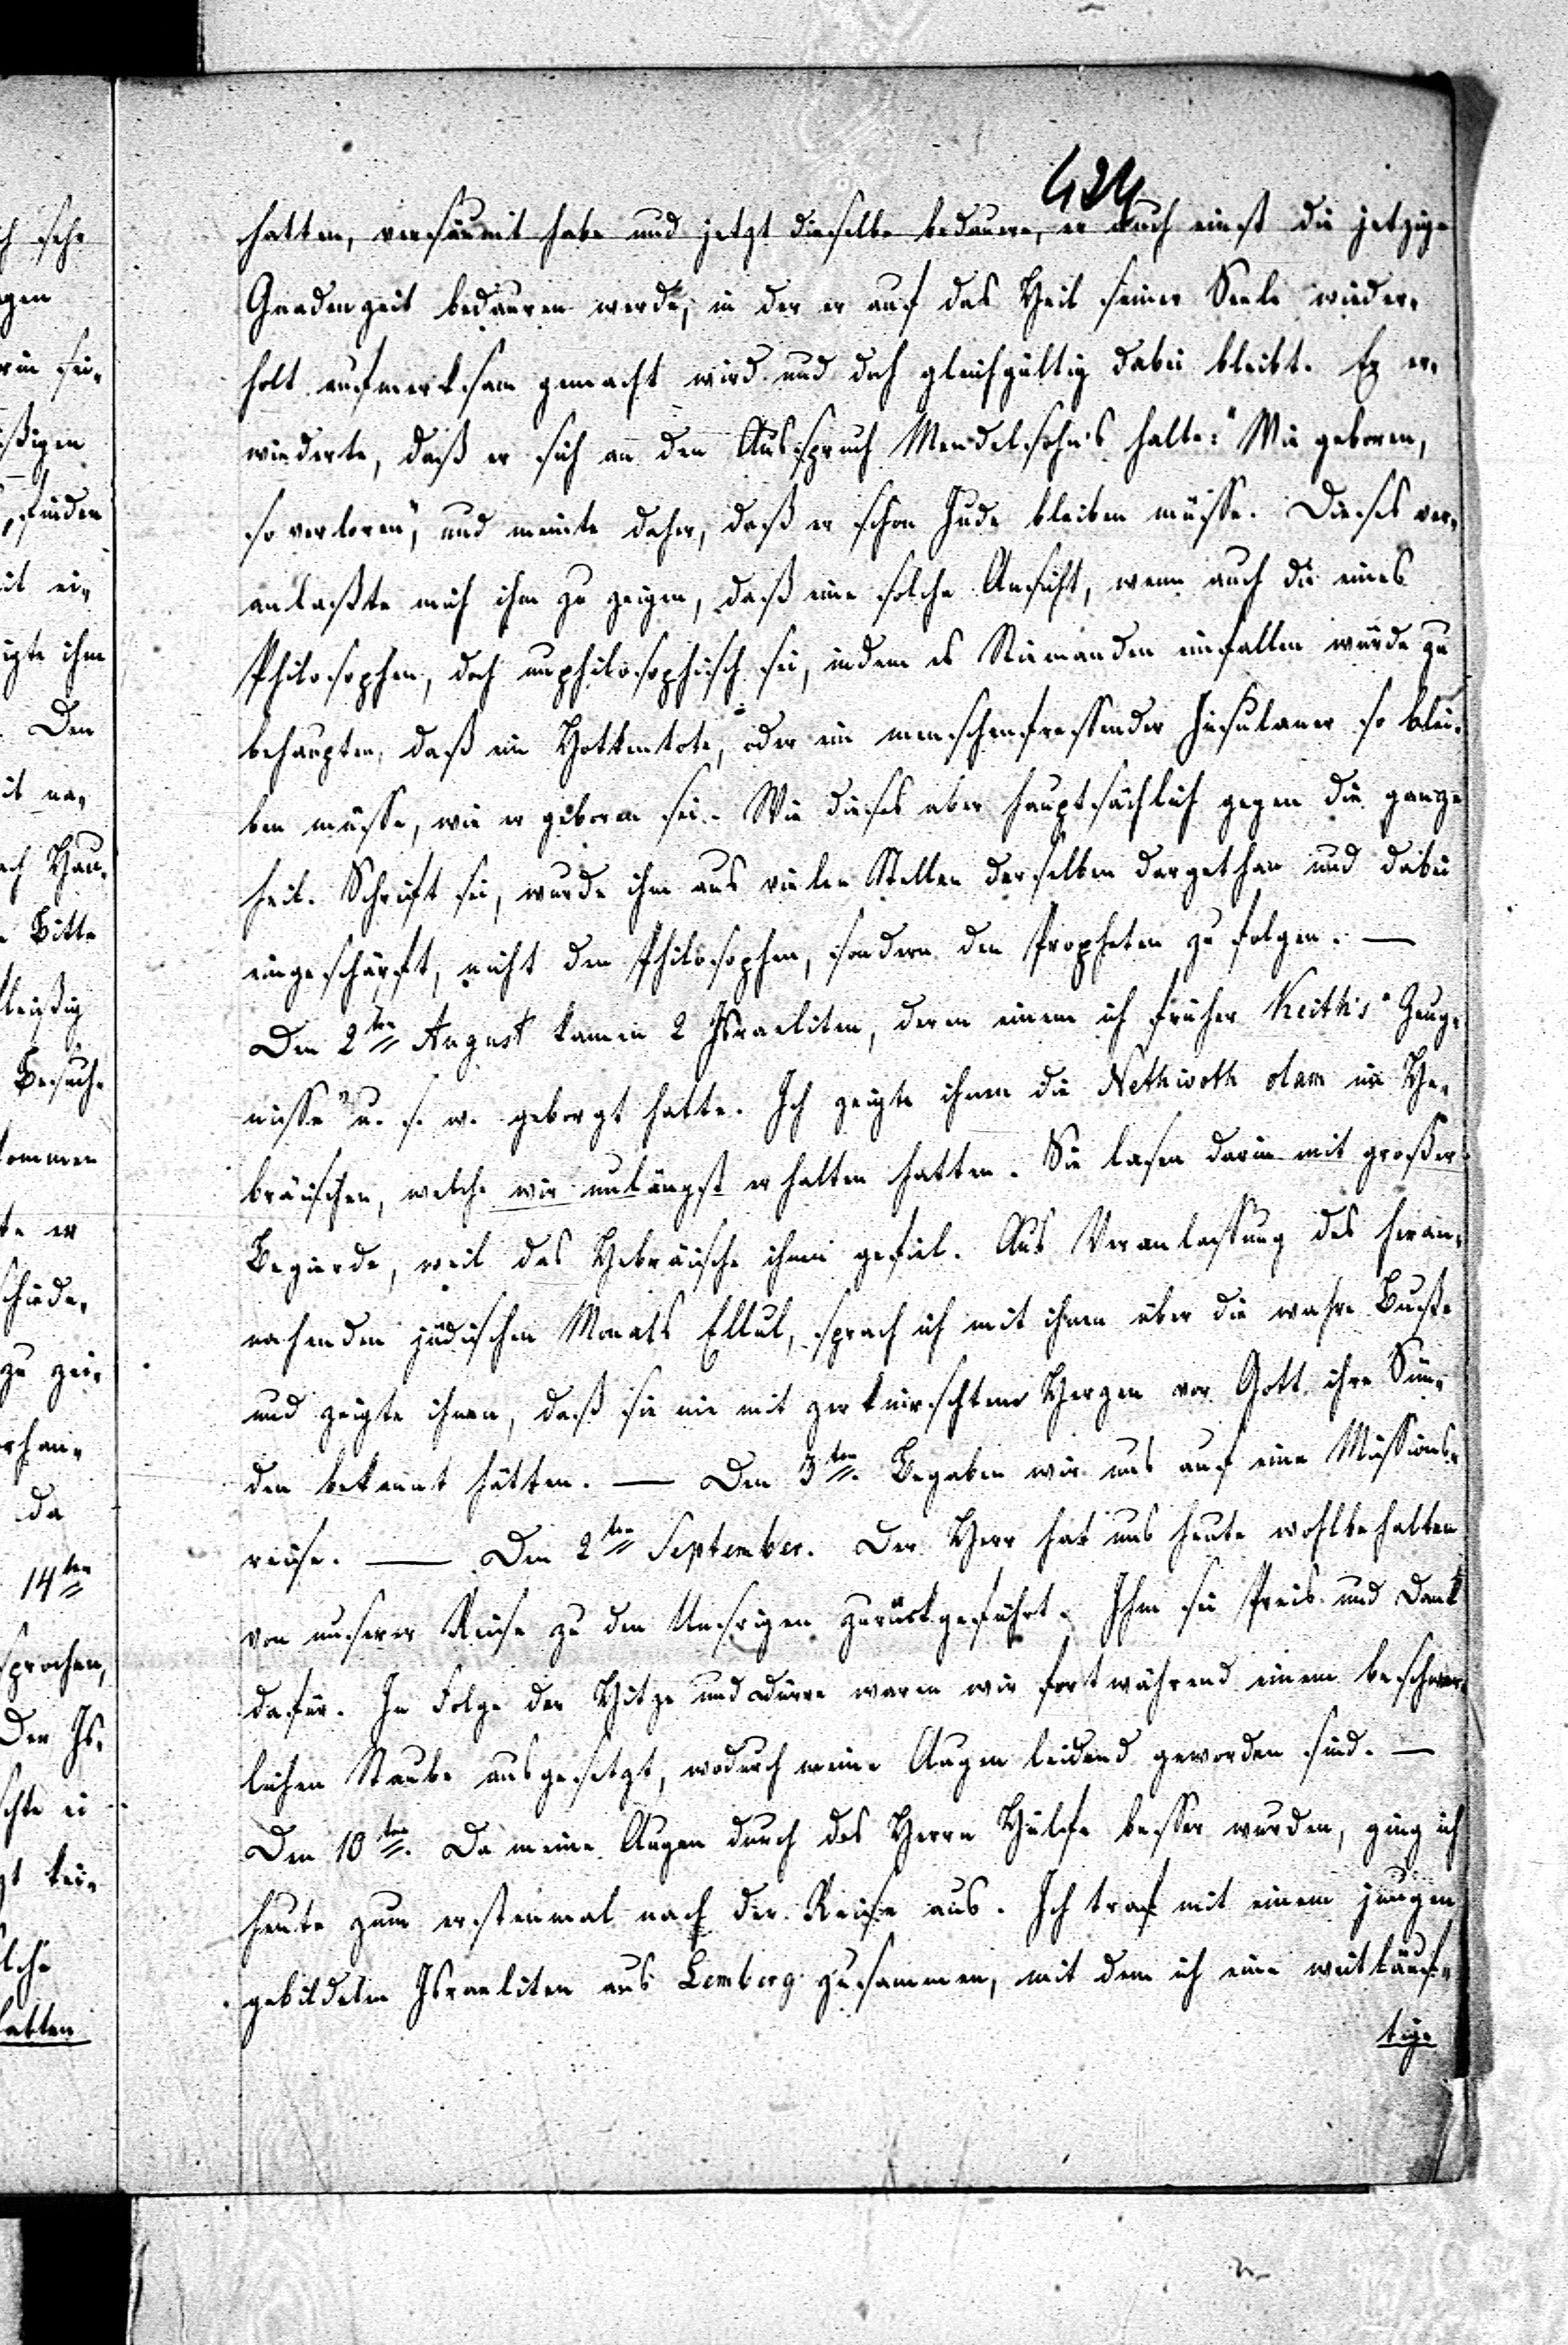 424
hatten, versäumt habe und jetzt dieselbe bedauere, er auch einst die jetzige
Gnadenzeit bedauren werde, in der er auf das Heil seiner Seele wieder-
holt aufmerksam gemacht wird und doch gleichgültig dabei bleibt. Er er-
wiederte, daß er sich an den Ausspruch Mendelsohn's halte: "Wie geboren,
so verloren", und meinte daher, daß er schon Jude bleiben müsse. Dieses ver-
anlaßte mich ihm zu zeigen, daß eine solche Ansicht, wenn auch die eines
Philosophen, doch unphilosophisch sei, indem es Niemanden einfallen würde zu
behaupten, daß ein Hottentote, oder ein menschenfressender Insulaner so blei-
ben müsse, wie er geboren sei. Wie dieses aber hauptsächlich gegen die ganze
heil. Schrift sei, wurde ihm aus vielen Stellen derselben dargethan und dabei
eingeschärft, nicht den Philosophen, sondern den Propheten zu folgen. —
Den 2ten August kamen 2 Israeliten, deren einem ich früher Keith's "Zeug-
nisse" u. s. w. geborgt hatte. Ich zeigte ihnen die Nethivoth olam im He-
bräischen, welche wir unlängst erhalten hatten. Sie lasen darin mit großer
Begierde, weil das Hebräische ihnen gefiel. Aus Veranlassung des heran-
nahenden jüdischen Monats Ellul, sprach ich mit ihnen über die wahre Buße
und zeigte ihnen, daß sie nie mit zerknirschtem Herzen vor Gott ihre Sün-
den bekannt hätten. — Den 3ten. Begaben wir uns auf eine Missions-
reise. — Den 2ten September. Der Herr hat uns heute wohlbehalten
von unserer Reise zu den Unsrigen zurückgeführt. Ihm sei Preis und Dank
dafür. In Folge der Hitze und Dürre waren wir fortwährend einem beschwer-
lichen Staube ausgesetzt, wodurch meine Augen leidend geworden sind. —
Den 10ten. Da meine Augen durch des Herrn Hülfe besser wurden, ging ich
heute zum erstenmal nach der Reise aus. Ich traf mit einem jungen
gebildeten Israeliten aus Lemberg zusammen, mit dem ich eine weitläuf-
tige